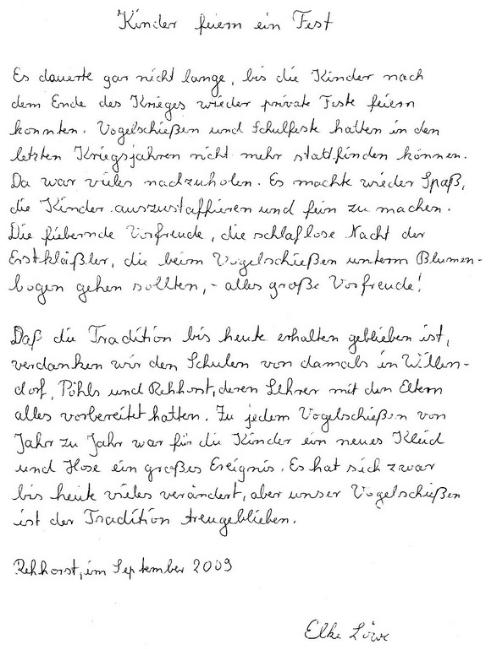 Kinder feiern ein Fest
Es dauerte gar nicht lange, bis die Kinder nach
dem Ende des Krieges wieder private Feste feiern
konnten. Vogelschießen und Schulfeste hatten in den
letzten Kriegsjahren nicht mehr stattfinden können.
Da war vieles nachzuholen. Es machte wieder Spaß,
die Kinder auszustaffieren und fein zu machen.
Die fiebernde Vorfreude, die schlaflose Nacht der
Erstkläßler, die beim Vogelschießen unterm Blumen-
bogen gehen sollten, - alles große Vorfreude!
Daß die Tradition bis heute erhalten geblieben ist,
verdanken wir den Schulen von damals in Willen-
dorf, Pöhls und Rehhorst, deren Lehrer mit den Eltern
alles vorbereitet hatten. Zu jedem Vogelschießen von
Jahr zu Jahr war für die Kinder ein neues Kleid
und Hose ein großes Ereignis. Es hat sich zwar
bis heute vieles verändert, aber unser Vogelschießen
ist der Tradition treugeblieben.
Rehhorst, im September 2009
Elke Löwe